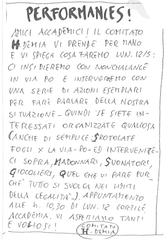 PERFORMANCES!
AMICI ACCADEMICI IL COMITATO
H DEMIA VI PRENDE PER MANO
E VI SPIEGA COSA FAREMO LUN. 12/5:
CI INSEDIEREMO CON NONCHALANCE
IN VIA PO E INTERVERREMO CON
UNA SERIE DI AZIONI ESEMPLARI
PER FARE PARLARE DELLA NOSTRA
SITUAZIONE - QUINDI SE SIETE IN-
TERESSATI ORGANIZZATE QUALCOSA
(ANCHE DI SEMPLICE SROTOLATE
FOGLI X LA VIA-PO ED INTERVENITE-
CI SOPRA, MADONNARI, SUONATORI,
GIOCOLIERI, QUEL CHE VI PARE PUR-
CHÉ TUTTO SI SVOLGA NEI LIMITI
DELLA LEGALITÀ). APPUNTAMENTO
ALLE H. 10,30 DI LUN. IN CORTILE
ACCADEMIA. VI ASPETTIAMO TANTI
E VOGLIOSI!
COMITATO
H DEMIA